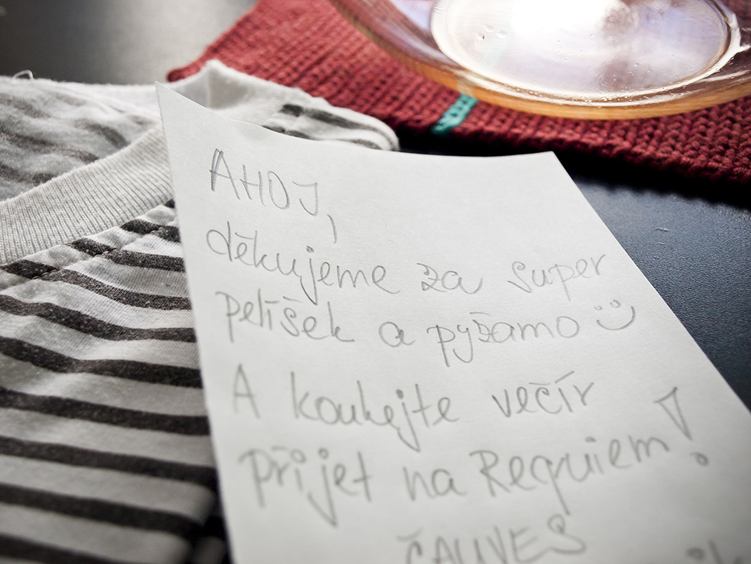 AHOJ,
děkujeme za super
pelíšek a pyžamo :)
A koukejte večír
přijet na Requiem!
ČAUVES